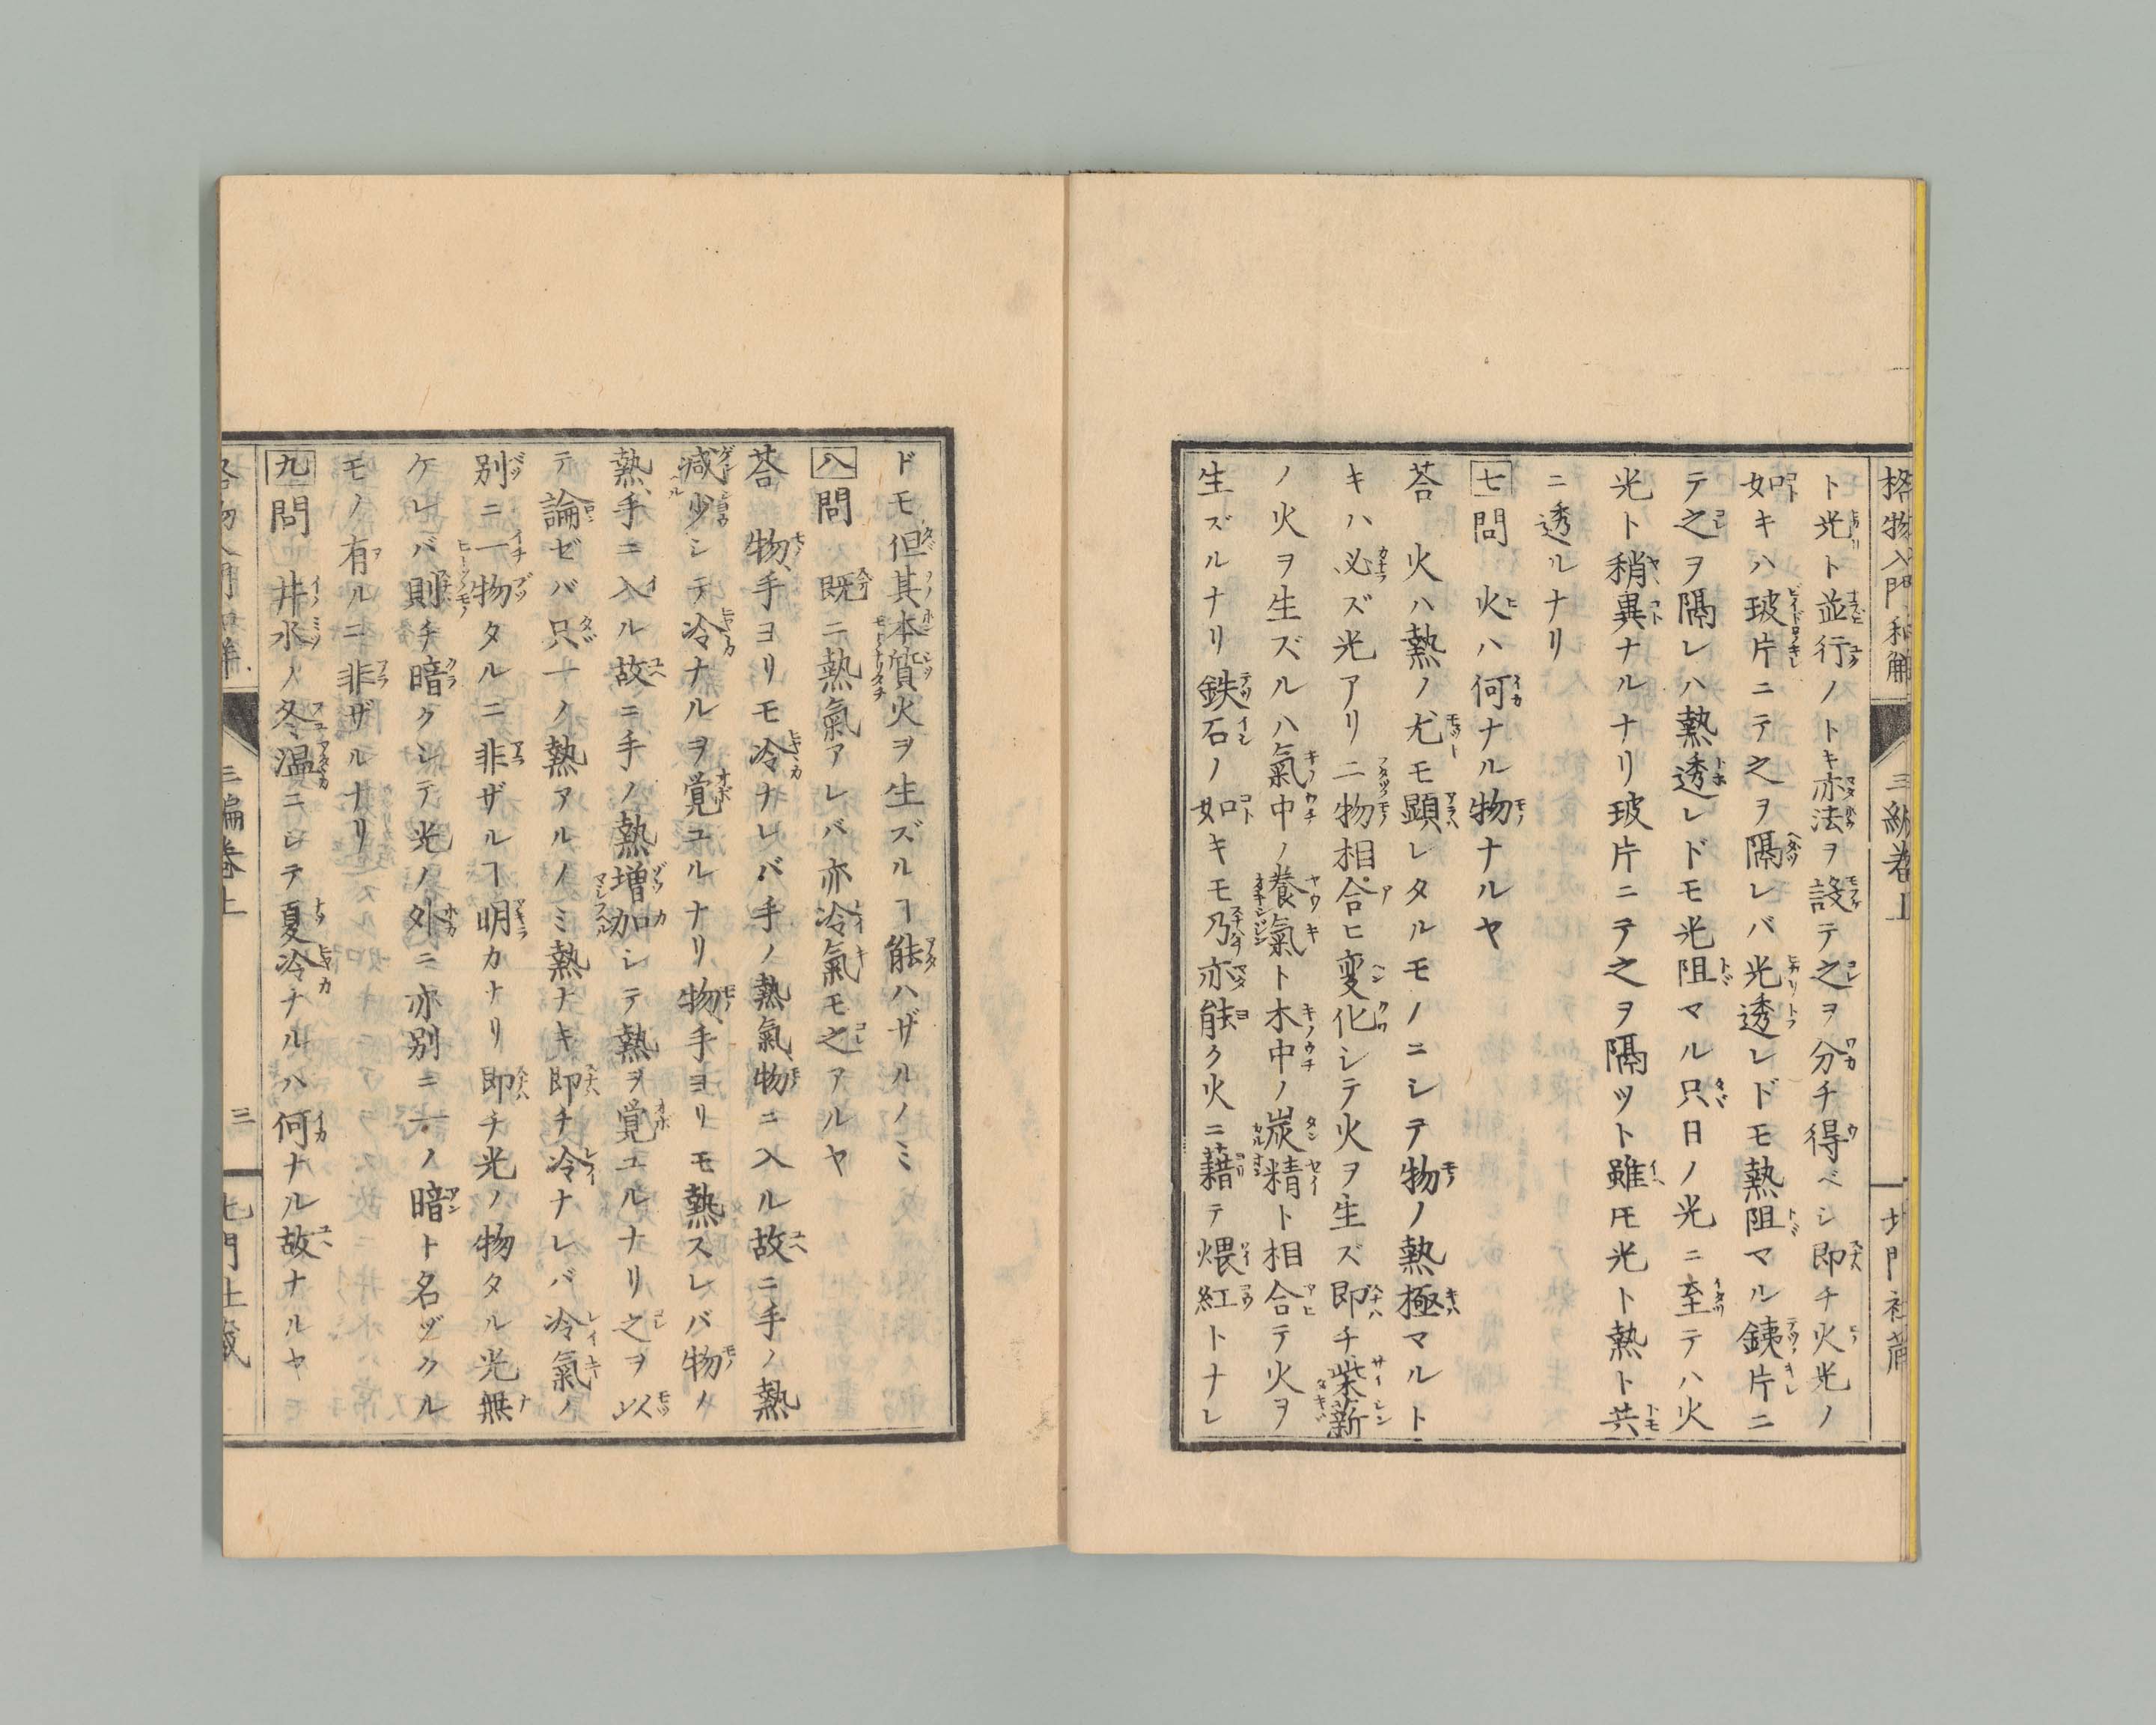 格物入門和解 三編巻上 北門社蔵
ト光ト並行ノトキ亦法ヲ設テ之ヲ分チ得ベシ即チ火光ノ
如キハ玻片ニテ之ヲ隔レバ光透レドモ熱阻マル銕片ニ
テ之ヲ隔レハ熱透レドモ光阻マル只日ノ光ニ至テハ火
光ト稍異ナルナリ玻片ニテ之ヲ隔ツト雖𪜈光ト熱ト共
ニ透ルナリ
七問 火ハ何ナル物ナルヤ
荅 火ハ熱ノ尤モ顕レタルモノニシテ物ノ熱極マルト
キハ必ズ光アリ二物相合ヒ変化シテ火ヲ生ズ即チ柴薪
ノ火ヲ生ズルハ氣中ノ養氣ト木中ノ炭精ト相合テ火ヲ
生ズルナリ鉄石ノ如キモ乃亦能ク火ニ藉テ煨紅トナレ
ドモ但其本質火ヲ生ズルヿ能ハザルノミ
八問 既ニ熱氣アレバ亦冷氣モ之アルヤ
荅 物、手ヨリモ冷ナレバ手ノ熱氣物ニ入ル故ニ手ノ熱
減少シテ冷ナルヲ覚ユルナリ物、手ヨリモ熱スレバ物ノ
熱、手ニ入ル故ニ手ノ熱増加シテ熱ヲ覚ユルナリ之ヲ以
テ論ゼバ只一ノ熱アルノミ熱ナキ即チ冷ナレバ冷氣ノ
別ニ一物タルニ非ザルヿ明カナリ即チ光ノ物タル光無
ケレバ則チ暗クシテ光ノ外ニ亦別ニ一ノ暗ト名ヅクル
モノ有ルニ非ザルナリ
九問 井水ノ冬温ニシテ夏冷ナルハ何ナル故ナルヤ
三編巻上 三